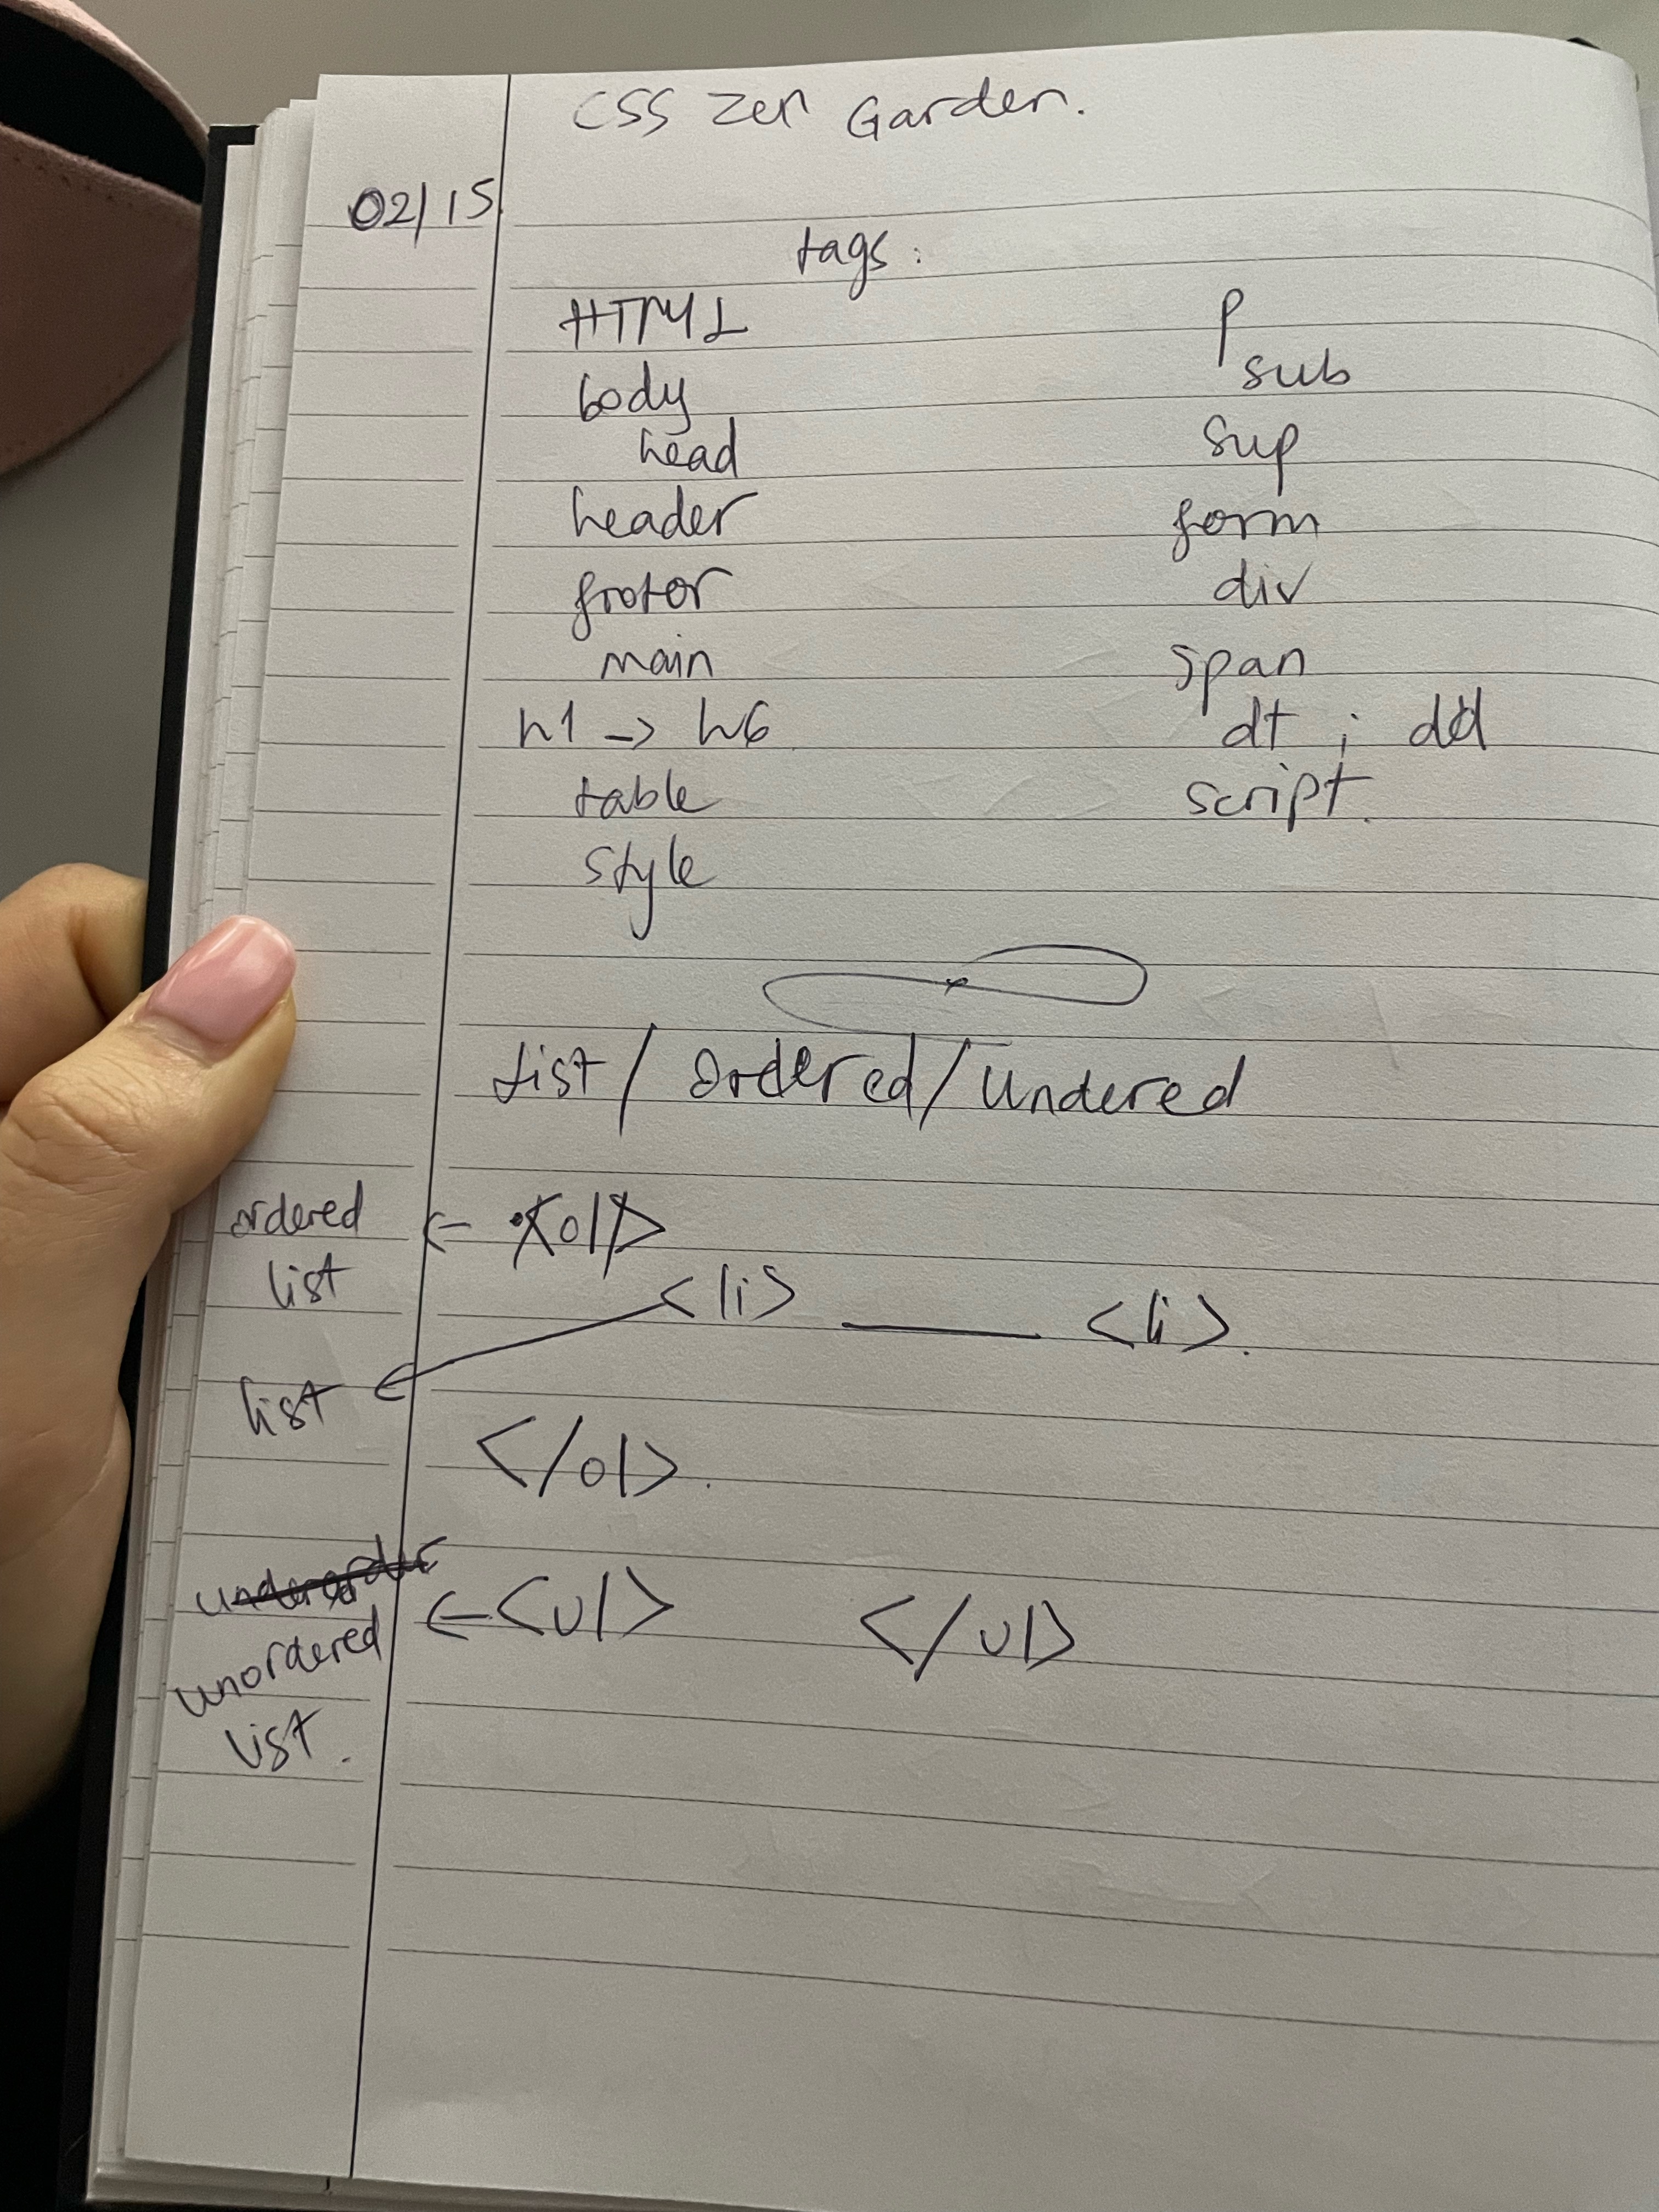 CSS Zen Garden.
02/15
tags:
HTML
body
head
header
footer
main
h1 -> h6
table
style
p
sub
sup
form
div
span
dt ; dd
script.
List / Ordered / Undered
ordered list <- <ol>
<li> ____ <li>.
list
</ol>.
<- <ul> </ul>
unordered
list.